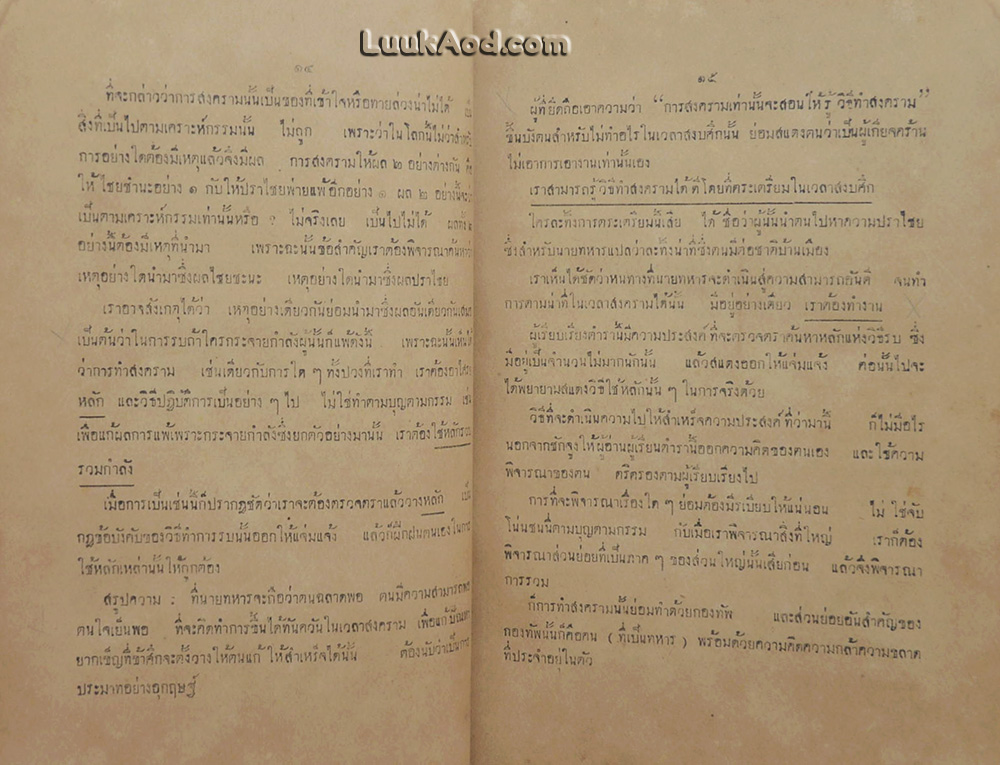 LuukAod.com
๑๔
ที่จะกล่าวว่าการสงครามนั้นเป็นของที่เข้าใจหรือทายล่วงน่าไม่ได้
สิ่งที่เป็นไปตามเคราะห์กรรมนั้น ไม่ถูก เพราะว่าในโลกนี้ไม่ว่าสำหรับ
การอย่างใดต้องมีเหตุแล้วจึงมีผล การสงครามให้ผล ๒ อย่างต่างกัน คือ
ให้ไชยชำนะอย่าง ๑ กับให้ปราไชยพ่ายแพ้อีกอย่าง ๑ ผล ๒ อย่างนี้จะว่า
เป็นตามเคราะห์กรรมเท่านั้นหรือ ? ไม่จริงเลย เป็นไปไม่ได้ ผลทั้ง ๒
อย่างนี้ต้องมีเหตุที่นำมา เพราะฉะนั้นข้อสำคัญเราต้องพิจารณาค้นหาว่า
เหตุอย่างใดนำมาซึ่งผลไชยชะนะ เหตุอย่างใดนำมาซึ่งผลปราไชย
เราอาจสังเกตุได้ว่า เหตุอย่างเดียวกันย่อมนำมาซึ่งผลอันเดียวกันเสมอ
เป็นต้นว่าในการรบถ้าใครกระจายกำลังผู้นั้นก็แพ้ดังนี้ เพราะฉะนั้นเห็นได้
ว่าการทำสงคราม เช่นเดียวกับการใด ๆ ทั้งปวงที่เราทำ เราต้องอาไศรย
หลัก และวิธีปฏิบัติการเป็นอย่าง ๆ ไป ไม่ใช่ทำตามบุญตามกรรม เช่น
เพื่อแก้ผลการแพ้เพราะกระจายกำลังซึ่งยกตัวอย่างมานั้น เราต้องใช้หลักการ
รวมกำลัง
เมื่อการเป็นเช่นนี้ก็ปรากฏชัดว่าเราจะต้องตรวจตราแล้ววางหลัก เป็น
กฎข้อบังคับของวิธีทำการรบนั้นออกให้แจ่มแจ้ง แล้วก็ฝึกฝนตนเองในการ
ใช้หลักเหล่านั้นให้ถูกต้อง
สรุปความ : ที่นายทหารจะถือว่าตนฉลาดพอ ตนมีความสามารถพอ
ตนใจเย็นพอ ที่จะคิดทำการขึ้นได้ทันควันในเวลาสงคราม เพื่อแก้ปัณหา
ยากเข็ญที่ข้าศึกจะตั้งวางให้ตนแก้ให้สำเร็จได้นั้น ต้องนับว่าเป็นการ
ประมาทอย่างอุกฤษฎ์
๑๕
ผู้ที่ยึดถือเอาความว่า “การสงครามเท่านั้นจะสอนให้รู้วิธีทำสงคราม”
ขึ้นบังตนสำหรับไม่ทำอไรในเวลาสงบศึกนั้น ย่อมสแดงตนว่าเป็นผู้เกียจคร้าน
ไม่เอาการเอางานเท่านั้นเอง
เราสามารถรู้วิธีทำสงครามได้ดีโดยที่ตระเตรียมในเวลาสงบศึก
ใครละทิ้งการตระเตรียมนี้เสีย ได้ชื่อว่าผู้นั้นนำตนไปหาความปราไชย
ซึ่งสำหรับนายทหารแปลว่าละทิ้งน่าที่ซึ่งตนมีต่อชาติบ้านเมือง
เราเห็นได้ชัดว่าหนทางที่นายทหารจะดำเนินสู่ความสามารถอันดี จนทำ
การตามน่าที่ในเวลาสงครามได้นั้น มีอยู่อย่างเดียว เราต้องทำงาน
ผู้เรียบเรียงตำรานี้มีความประสงค์ที่จะตรวจตราค้นหาหลักแห่งวิธีรบ ซึ่ง
มีอยู่เป็นจำนวนไม่มากนักนั้น แล้วสแดงออกให้แจ่มแจ้ง ต่อนั้นไปจะ
ได้พยายามสแดงวิธีใช้หลักนั้น ๆ ในการจริงด้วย
วิธีที่จะดำเนินความไปให้สำเร็จความประสงค์ที่ว่ามานี้ ก็ไม่มีอไร
นอกจากชักจูงให้ผู้อ่านผู้เรียนตำรานี้ออกความคิดของตนเอง และใช้ความ
พิจารณาของตน ตริตรองตามผู้เรียบเรียงไป
การที่จะพิจารณาเรื่องใด ๆ ย่อมต้องมีระเบียบให้แน่นอน ไม่ใช่จับ
โน่นชนนี่ตามบุญตามกรรม กับเมื่อเราพิจารณาสิ่งที่ใหญ่ เราก็ต้อง
พิจารณาส่วนย่อยที่เป็นภาค ๆ ของส่วนใหญ่นั้นเสียก่อน แล้วจึงพิจารณา
การรวม
ก็การทำสงครามนั้นย่อมทำด้วยกองทัพ และส่วนย่อยอันสำคัญของ
กองทัพนั้นก็คือคน ( ที่เป็นทหาร ) พร้อมด้วยความคิดความกล้าความฉลาด
ที่ประจำอยู่ในตัว